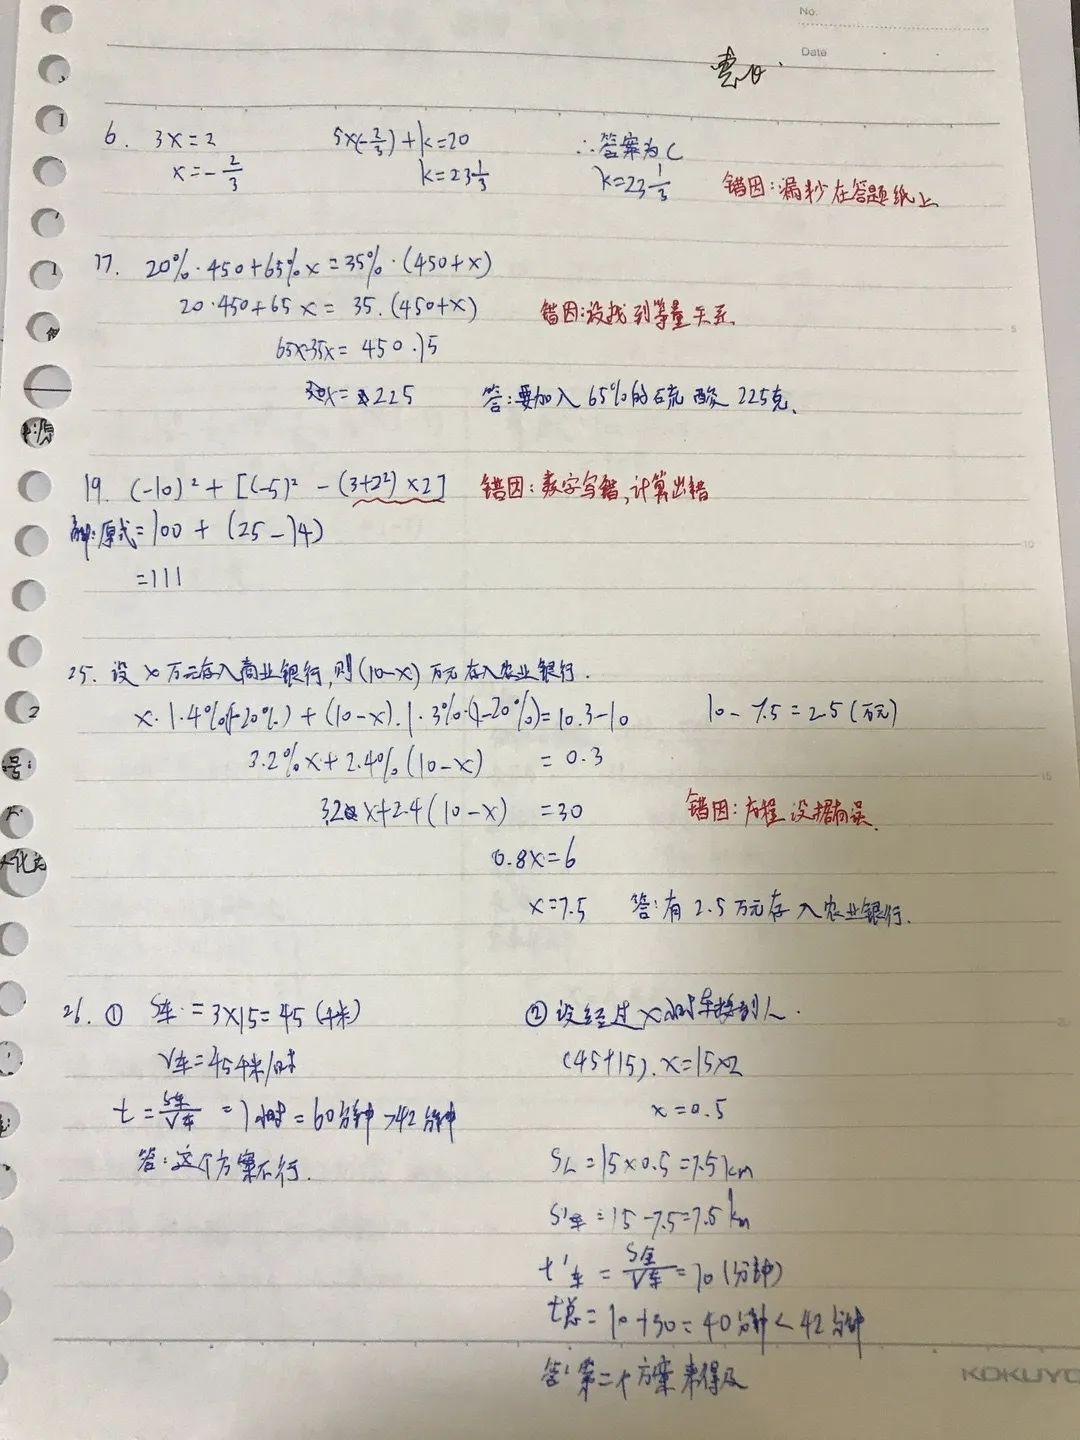 No.
Date
6. 3x=2 5×(-2/3)+k=20 ∴答案为C
x=-2/3 k=23 1/3 k=23 1/3 错因:漏抄在答题纸上
17. 20%·450+65%x=35%·(450+x)
20·450+65x=35.(450+x) 错因:没找到等量关系.
65x-35x=450.15
x=225 答:要加入65%的硫酸225克.
19. (-10)²+[(-5)²-(3+2²)×2] 错因:数字写错,计算出错
解:原式=100+(25-14)
=111
25. 设x万元存入商业银行,则(10-x)万元存入农业银行.
x·1.4%(1-20%)+(10-x).1.3%·(1-20%)=10.3-10 10-7.5=2.5(万元)
3.2%x+2.4%(10-x)=0.3
3.2x+2.4(10-x)=30 错因:方程设据有误.
0.8x=6
x=7.5 答:有2.5万元存入农业银行.
26. ① S车=3×15=45(千米) ②设经过x小时车接到人.
V车=45千米/时 (45+15).x=15×2
t=S车/V车=1小时=60分钟>42分钟 x=0.5
答:这个方案不行. S人=15×0.5=7.5km
S'车=15-7.5=7.5km
t'车=S车/V车=10(分钟)
t总=10+30=40分钟<42分钟
答:第二个方案来得及
KOKUYO
5
10
15
号:
2